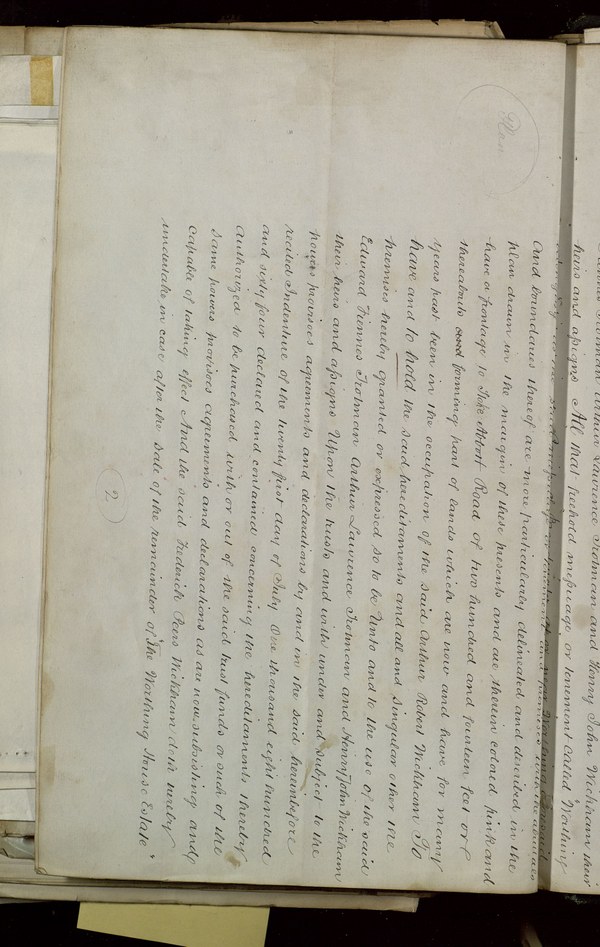 heirs and assigns All that freehold messuage or tenement called Worthing
and boundaries thereof are more particularly delineated and described in the
plan drawn in the margin of these presents and are therein colored pink and
have a frontage to Abbott Road of two hundred and fourteen feet or
thereabouts forming part of lands which are now and have for many
years past been in the occupation of the said Arthur Robert Wickham To
have and to hold the said hereditaments and all and singular other the
premises hereby granted or expressed so to be Unto and to the use of the said
Edward Fiennes Trotman Arthur Lawrence Trotman and Henry John Wickham
their heirs and assigns Upon the trusts and with under and subject to the
powers provisoes agreements and declarations by and in the said hereinbefore
recited Indenture of the twenty first day of July One thousand eight hundred
and sixty four declared and contained concerning the hereditaments thereby
authorized to be purchased with or out of the said trust funds or such of the
same powers provisoes agreements and declarations as are now subsisting and
capable of taking effect And the said Frederick Peers Wickham doth hereby
undertake in case after the sale of the remainder of The Worthing House Estate
Plan
2